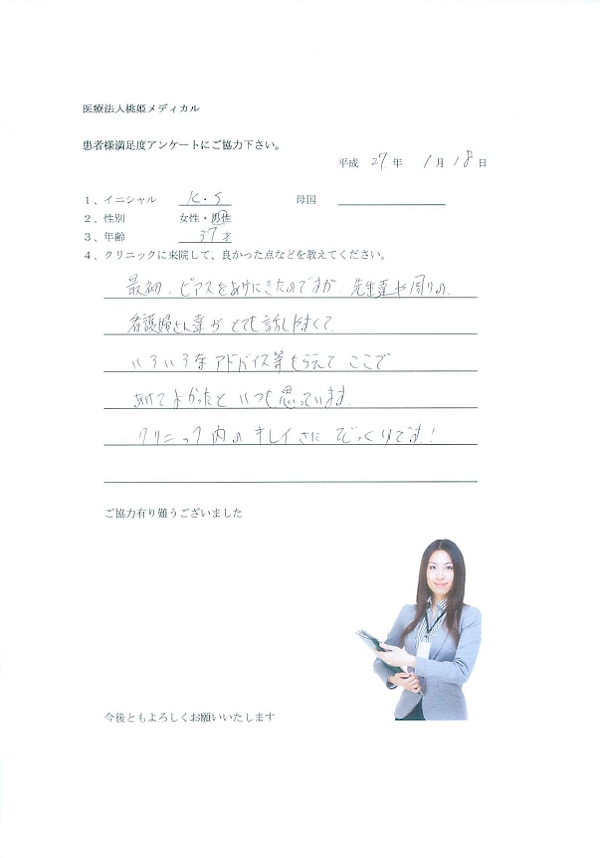 医療法人桃姫メディカル
患者様満足度アンケートにご協力下さい。
平成 27. 年 1 月 18 日
1、イニシャル K・S 母国
2、性別 女性・男性
3、年齢 37才
4、クリニックに来院して、良かった点などを教えてください。
最初、ピアスをあけにきたのですが、先生達や周りの
看護婦さん達がとても話しやすくて、
いろいろなアドバイス等もらえて ここで
あけてよかったと いつも思っています。
クリニック内のキレイさに びっくりです!
ご協力有り難うございました
今後ともよろしくお願いいたします